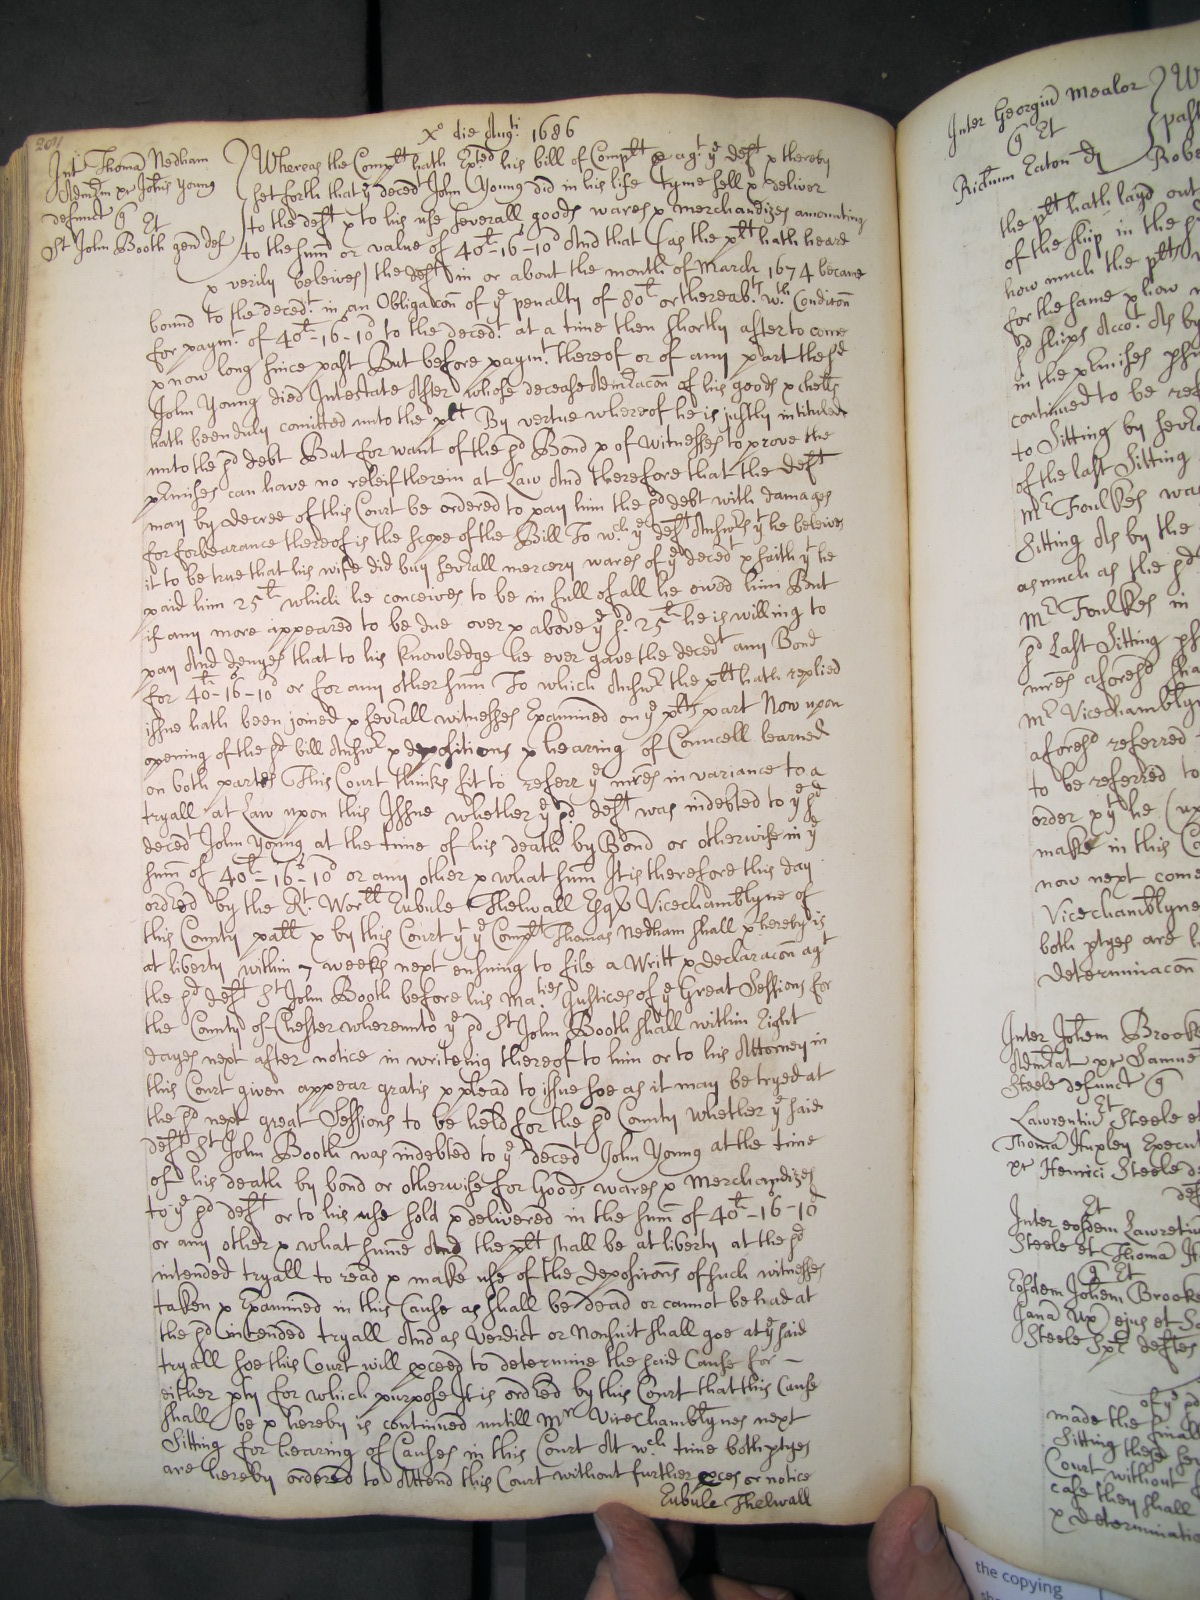 201
Xº die Augti 1686
Int Thomã Nedham
Admõn pr Johis Young
defunct q̃ Et
St John Booth gen def
Whereas the Complt hath Exted his bill of Complt agt ye deft & thereby
set forth that ye deced John Young did in his life tyme sell & deliver
to the deft & to his use severall goods wares & merchandizes amounting
to the sum or value of 40l-16s-10d And that (as the plt hath heard
& verily beleives) the deft in or about the month of March 1674 became
bound to the decedt in an Obligacon of ye penalty of 80l or thereabts wth Condicon
for paymt of 40l-16s-10d to the decedt at a time then shortly after to come
& now long since past But before paymt thereof or of any part the sd
John Young died Intestate After whose decease Admracon of his goods & chells
hath been duly comitted unto the plt By vertue whereof he is justly intituled
unto the sd debt But for want of the sd Bond & of Witnesses to prove the
pmises can have no releif therein at Law And therefore that the deft
may by decree of this Court be ordered to pay him the sd debt with damages
for forbearance thereof is the scope of the Bill To wch ye deft Answrs yt he beleives
it to be true that his wife did buy sevrall mercery wares of ye decedt & saith yt he
paid him 25l which he conceives to be in full of all he owed him But
if any more appeared to be due over & above ye sd 25l he is willing to
pay And denyes that to his knowledge he ever gave the decedt any Bond
for 40l-16s-10d or for any other sum To which Answr the plt hath replied
issue hath been joined & sevrall witnesses Examined on ye plts part Now upon
opening of the sd bill Answr & depositions & hearing of Councell learned
on both partes This Court thinks fit to referr ye mres in variance to a
tryall at Law upon this Issue whether ye sd deft was indebted to ye sd
deced John Young at the time of his death by Bond or otherwise in ye
sum of 40l-16s-10d or any other & what sum It is therefore this day
ordred by the Rt Worll Eubule Thelwall Esqr Vicechamblyne of
this County pall & by this Court yt ye Complt Thomas Nedham shall & hereby is
at liberty within 7 weeks next ensuing to file a Writt & declaracon agt
the sd deft St John Booth before his Maties Justices of ye Great Sessions for
the County of Chester whereunto ye sd St John Booth shall within Eight
dayes next after notice in writeing thereof to him or to his Attorney in
this Court given appear gratis & plead to issue soe as it may be tryed at
the sd next great Sessions to be held for the sd County whether ye said
deft St John Booth was indebted to ye decedt John Young at the time
of his death by bond or otherwise for Goods wares & Merchandizes
to ye sd deft or to his use sold & delivered in the sum of 40l-16s-10d
or any other & what sume And the plt shall be at liberty at the sd
intended tryall to read & make use of the depositons of such witnesses
taken & Examined in this Cause as shall be dead or cannot be had at
the sd intended tryall And as Verdict or Nonsuit shall goe at ye said
tryall soe this Court will pceed to determine the said Cause for –
either pty for which purpose It is ordred by this Court that this Cause
shall be & hereby is continued untill Mr Vicechamblynes next
Sitting for hearing of Causes in this Court At wch time both ptyes
are hereby ordered to Attend this Court without further pces or notice
Eubule Thelwall
Inter Georgiũ Mealor
q̃ Et
Ricũm Eaton df
the plt hath layd out
of the ship in the
how much the plts
for the same & how
sd ships Accot As by
in the pmises
continued to be
to Sitting by
of the last Sitting
Mr Foulkes was
Sitting As by the
as much as the sd
Mr Foulkes in
sd Last Sitting
mres aforesd
Mr Vicechamblyn
aforesd referred
to be referred to
order & yt he (up
make in this Co
now next come
Vicechamblyne
both ptyes are
determinacon
Inter Johem Brooke
Admtat pr Samue
Steele defunct q̃
Et
Lawrentiũ Steele et
Thomã Huxley Execut
pr Henrici Steele de
Et
Inter eosdem Lawrentiũ
Steele et Thomã
q̃ Et
Eosdem Johem Brooke
Janã Ux ejus et
Steele deftes
of ye sd
made the finall
Sitting these
Court without
case they shall
& determinatio
the copying